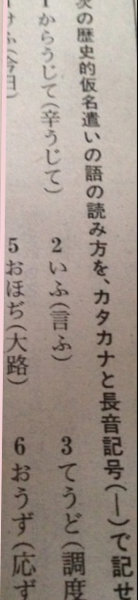 次の歴史的仮名遣いの語の読み方を、カタカナと長音記号(ー)で記せ
1 からうじて(辛うじて)
2 いふ(言ふ)
3 てうど(調度
けふ(今日)
5 おほぢ(大路)
6 おうず(応ず